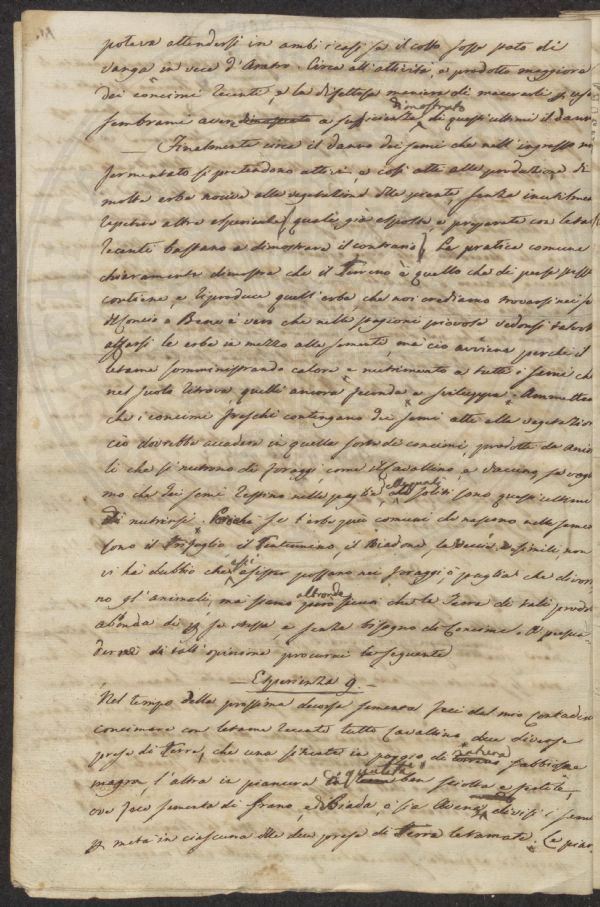 potava attendersi in ambi i casi se il colto fosse stato di
vanga in vece d'Aratro. Circa all'attività, e prodotto maggiore
dei concimi recente, e la difettosa maniera di macerarli
dimostrato
sembrami aver a sufficienza di quest'ultimi il danno
Finalmente circa il danno dei semi che nell'ingrasso non
fermentato si pretendono attivi, e così atti alla produzione di
molta erba nociva alla vegetazione delle piante, senza inutilmente
repetere altre esperienze, quali già esposte, e preparate con letame
recente bastano a dimostrare il contrario. La pratica comune
chiaramente dimostra che il Terreno è quello che di per se stesso
contiene, e riproduce quell'erba, che noi crediamo trovarsi nel
Concio. Bene è vero che nelle stagioni piovose vedonsi talvolta
le erbe in mezzo alle semente, ma ciò avviene perchè il
letame somministrando calore, e nutrimento a tutti i semi che
nel suolo ritrova, quelli ancora feconda, e sviluppa. Ammettendo
che i concimi freschi contengano dei semi atti alla vegetazione
ciò dovrebbe accadere in quella sorte di concimi, prodotti da anima
li che si nutrono di foraggi, come il Cavallino, e Vaccino, se voglia
mo che dei semi restino nella paglia, de' quali soliti sono quest'ultimi
di nutrirsi. se l'erbe più comuni che nascono nelle semente
sono il Trifoglio, il , il , la Veccia, e simili, non
vi ha dubbio che essi possano nei foraggi, o paglia che divora
no gl'animali, ma siamo altronde sicuri che la Terra di tali prodotti
abonda di per se stessa, e senza bisogno di Concime. A persua
dermi di tale opinione procurai la seguente
Esperienza 9
Nel tempo della prossima decorsa sementa feci dal mio Contadino
concimare con letame recente tutto Cavallino, due diverse
prese di Terre, che una situata in poggio di natura sabbiosa
magra, l'altra in pianura di qualità ben sciolta e
ove fece sementa di Grano, e Biada, o sia Avena, divisi i semi
per metà in ciascuna delle due prese di Terra letamate. La